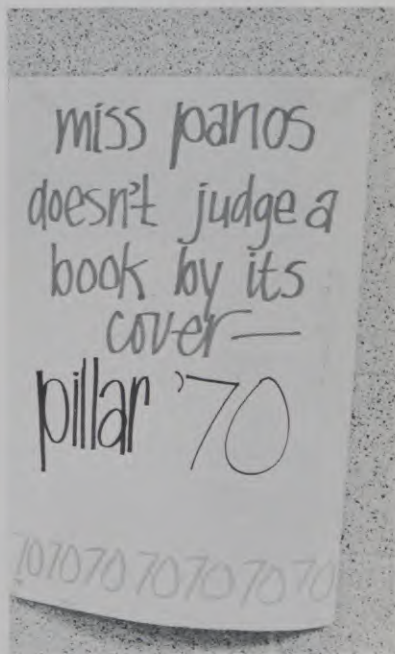 miss panos
doesn't judge a
book by its
cover—
pillar '70
70707070707070